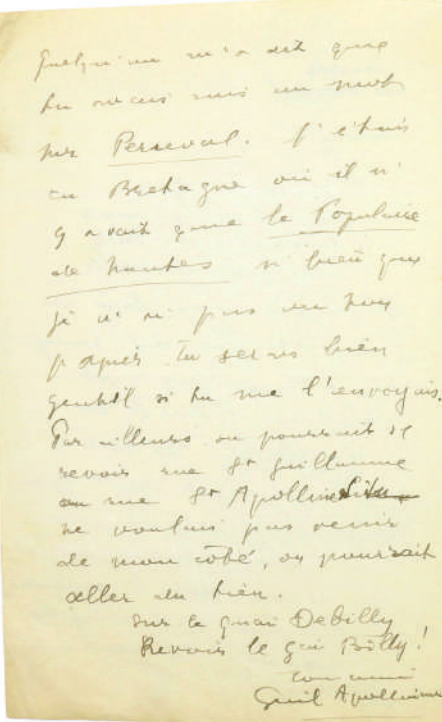 Quelqu'un m'a dit que
tu avais mis un mot
sur Perceval. J'étais
en Bretagne où il n'
y avait que le Populaire
de Nantes si bien que
je n'ai pas vu ton
papier. Tu serais bien
gentil si tu me l'envoyais.
Par ailleurs on pourrait se
revoir rue St Guillaume
ou rue St Apolline. Si tu
ne voulais pas venir
de mon côté, on pourrait
aller du tien.
Sur le quai Debilly
Revoir le gai Billy!
ton ami
Guil Apollinaire